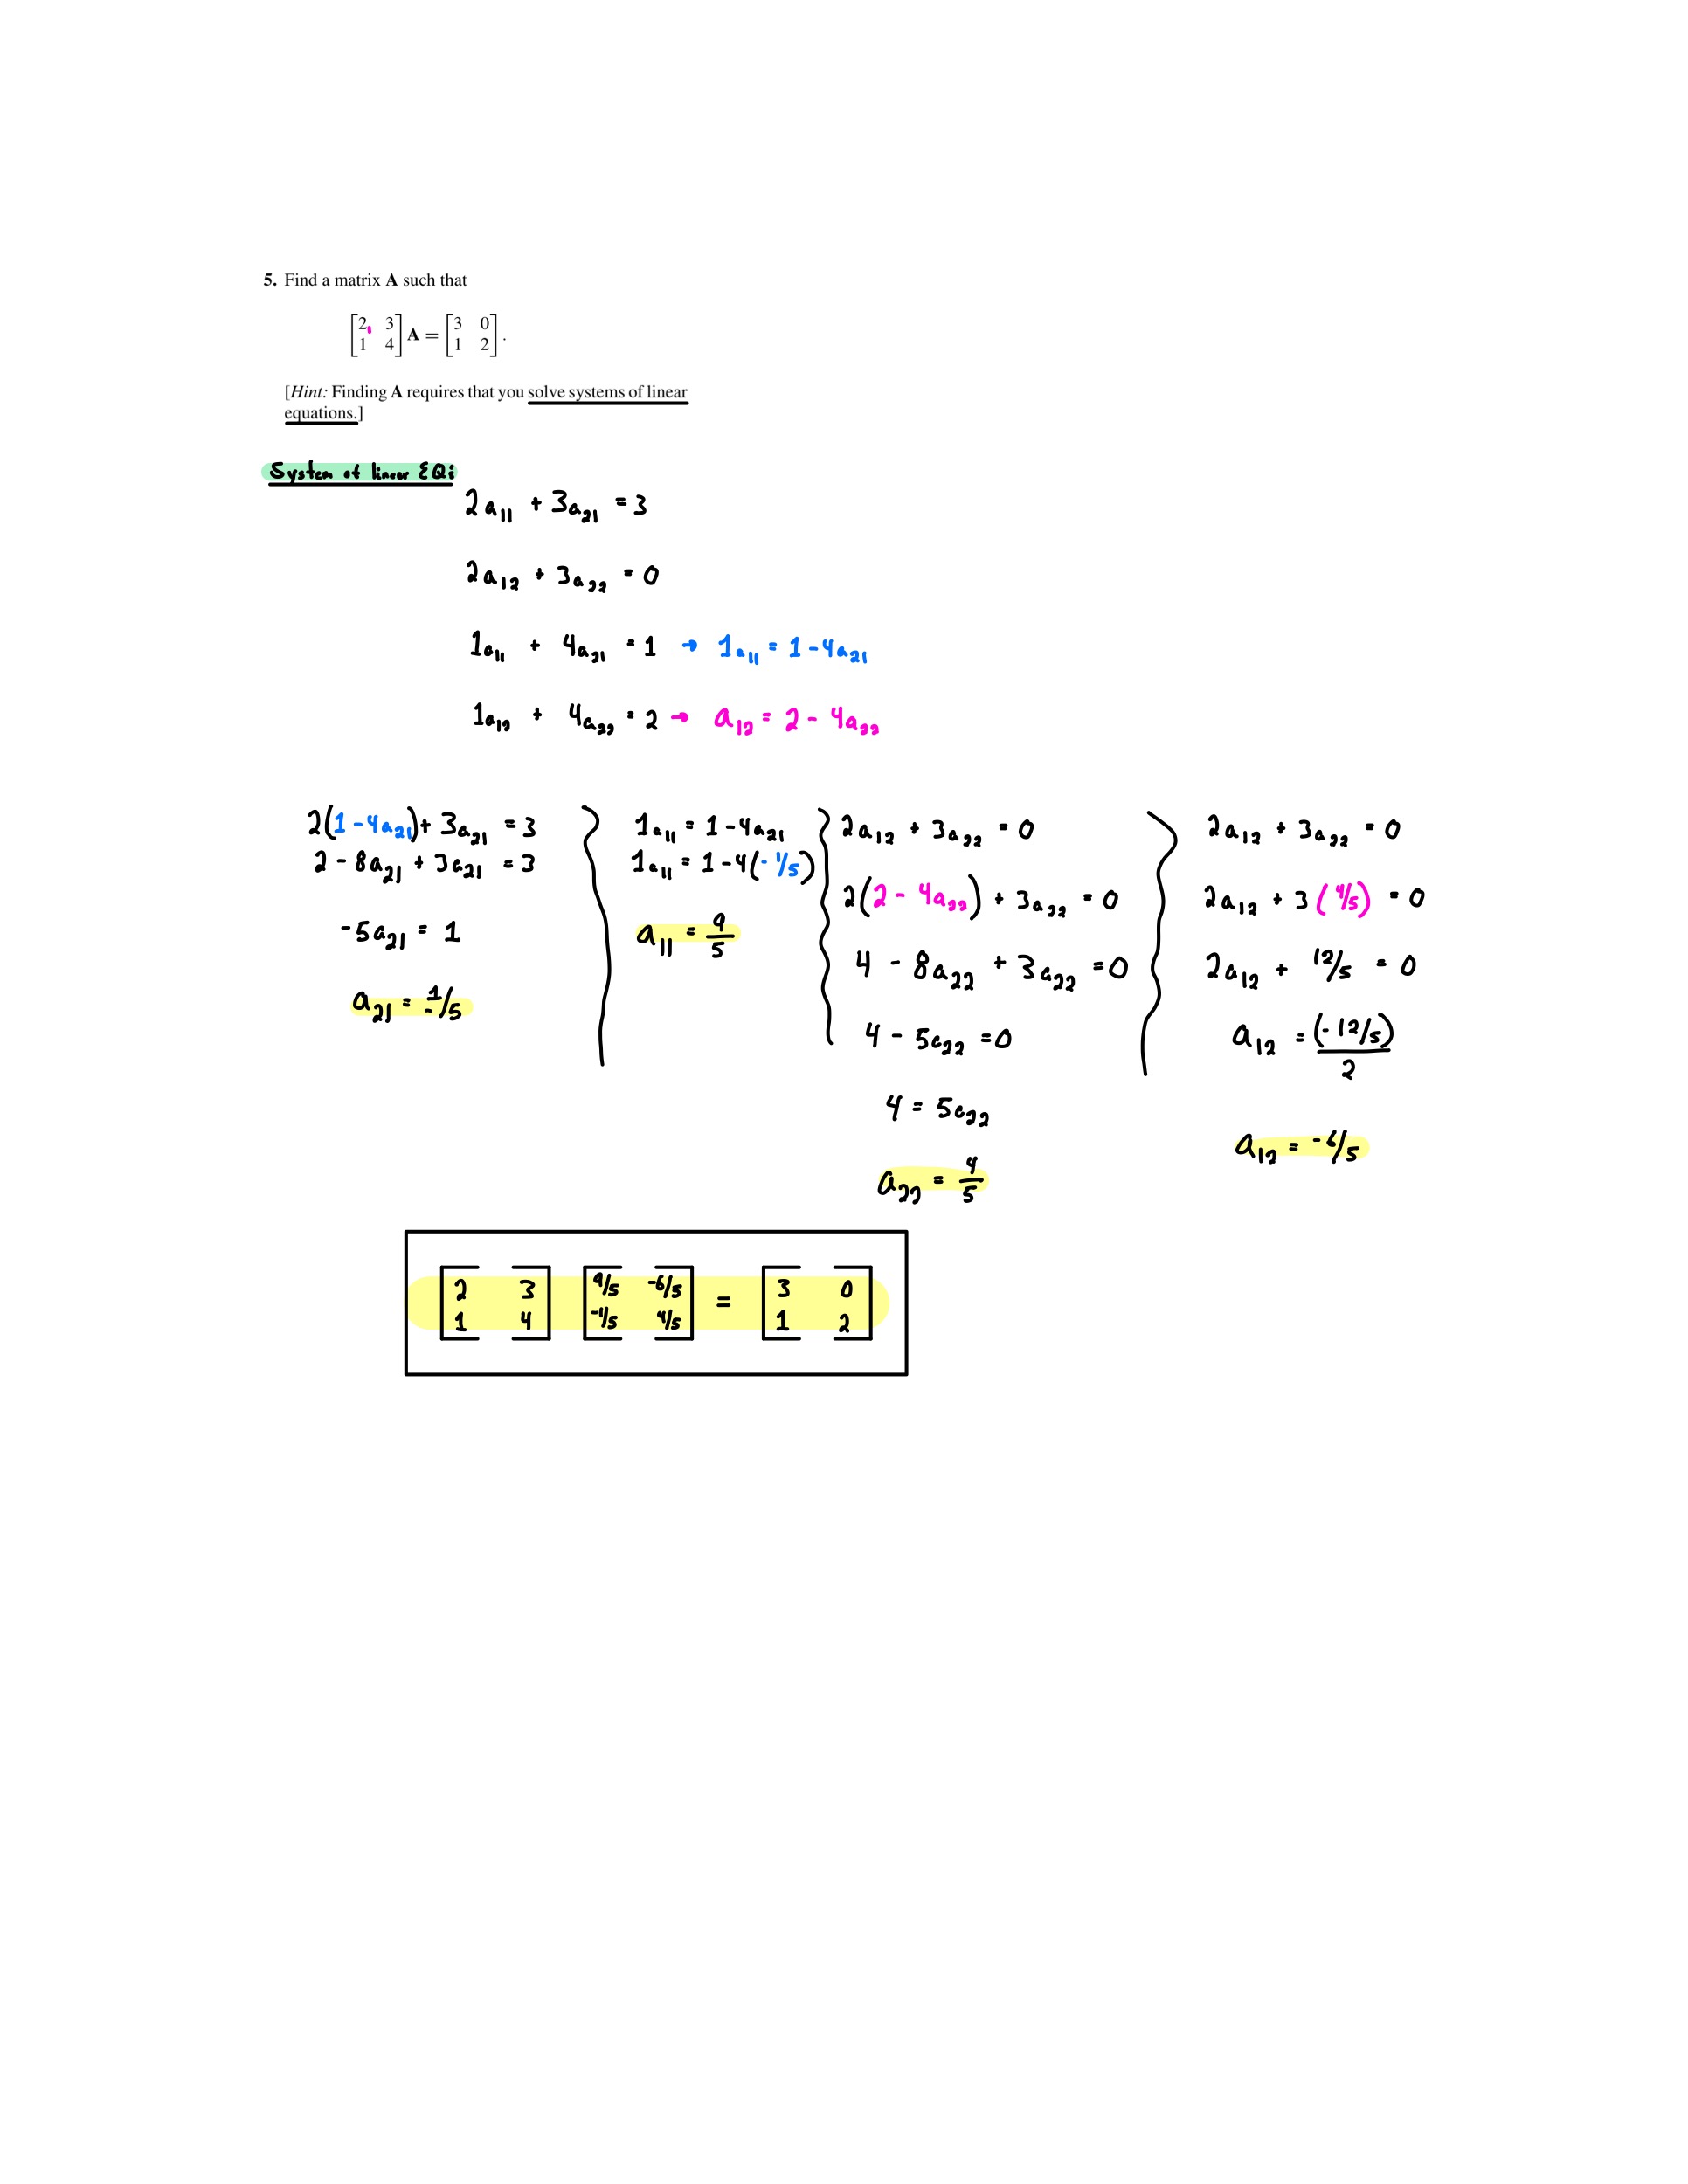 5. Find a matrix A such that
[2 3] A = [3 0] .
[1 4] [1 2]
[Hint: Finding A requires that you solve systems of linear
equations.]
System of linear EQ:
2a₁₁ + 3a₂₁ = 3
2a₁₂ + 3a₂₂ = 0
1a₁₁ + 4a₂₁ = 1 → 1a₁₁ = 1 - 4a₂₁
1a₁₂ + 4a₂₂ = 2 → a₁₂ = 2 - 4a₂₂
2(1 - 4a₂₁) + 3a₂₁ = 3
2 - 8a₂₁ + 3a₂₁ = 3
-5a₂₁ = 1
a₂₁ = -1/5
1a₁₁ = 1 - 4a₂₁
1a₁₁ = 1 - 4(-1/5)
a₁₁ = 9/5
2a₁₂ + 3a₂₂ = 0
2(2 - 4a₂₂) + 3a₂₂ = 0
4 - 8a₂₂ + 3a₂₂ = 0
4 - 5a₂₂ = 0
4 = 5a₂₂
a₂₂ = 4/5
2a₁₂ + 3a₂₂ = 0
2a₁₂ + 3(4/5) = 0
2a₁₂ + 12/5 = 0
a₁₂ = (-12/5)/2
a₁₂ = -6/5
[2 3] [9/5 -6/5] = [3 0]
[1 4] [-1/5 4/5] [1 2]